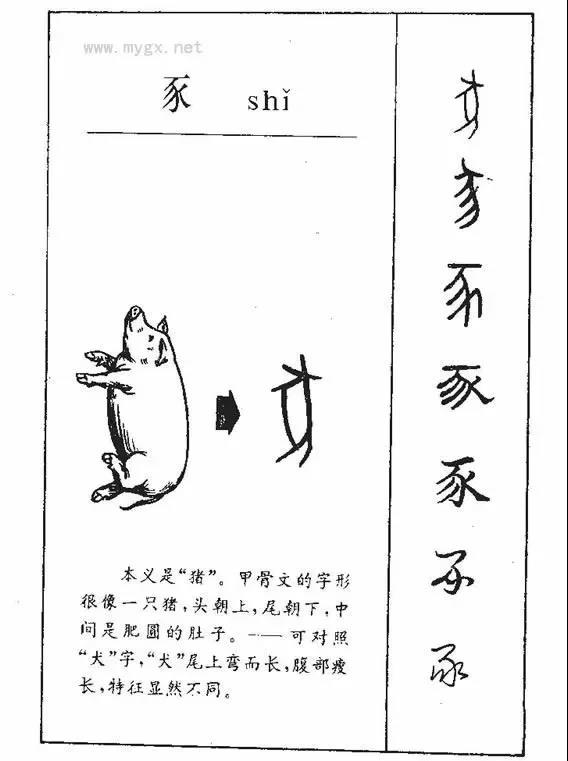 www.mygx.net
豕 shǐ
本义是“猪”。甲骨文的字形
很像一只猪,头朝上,尾朝下,中
间是肥圆的肚子。——可对照
“犬”字,“犬”尾上弯而长,腹部瘦
长,特征显然不同。
豕
豕
豕
豕
豕